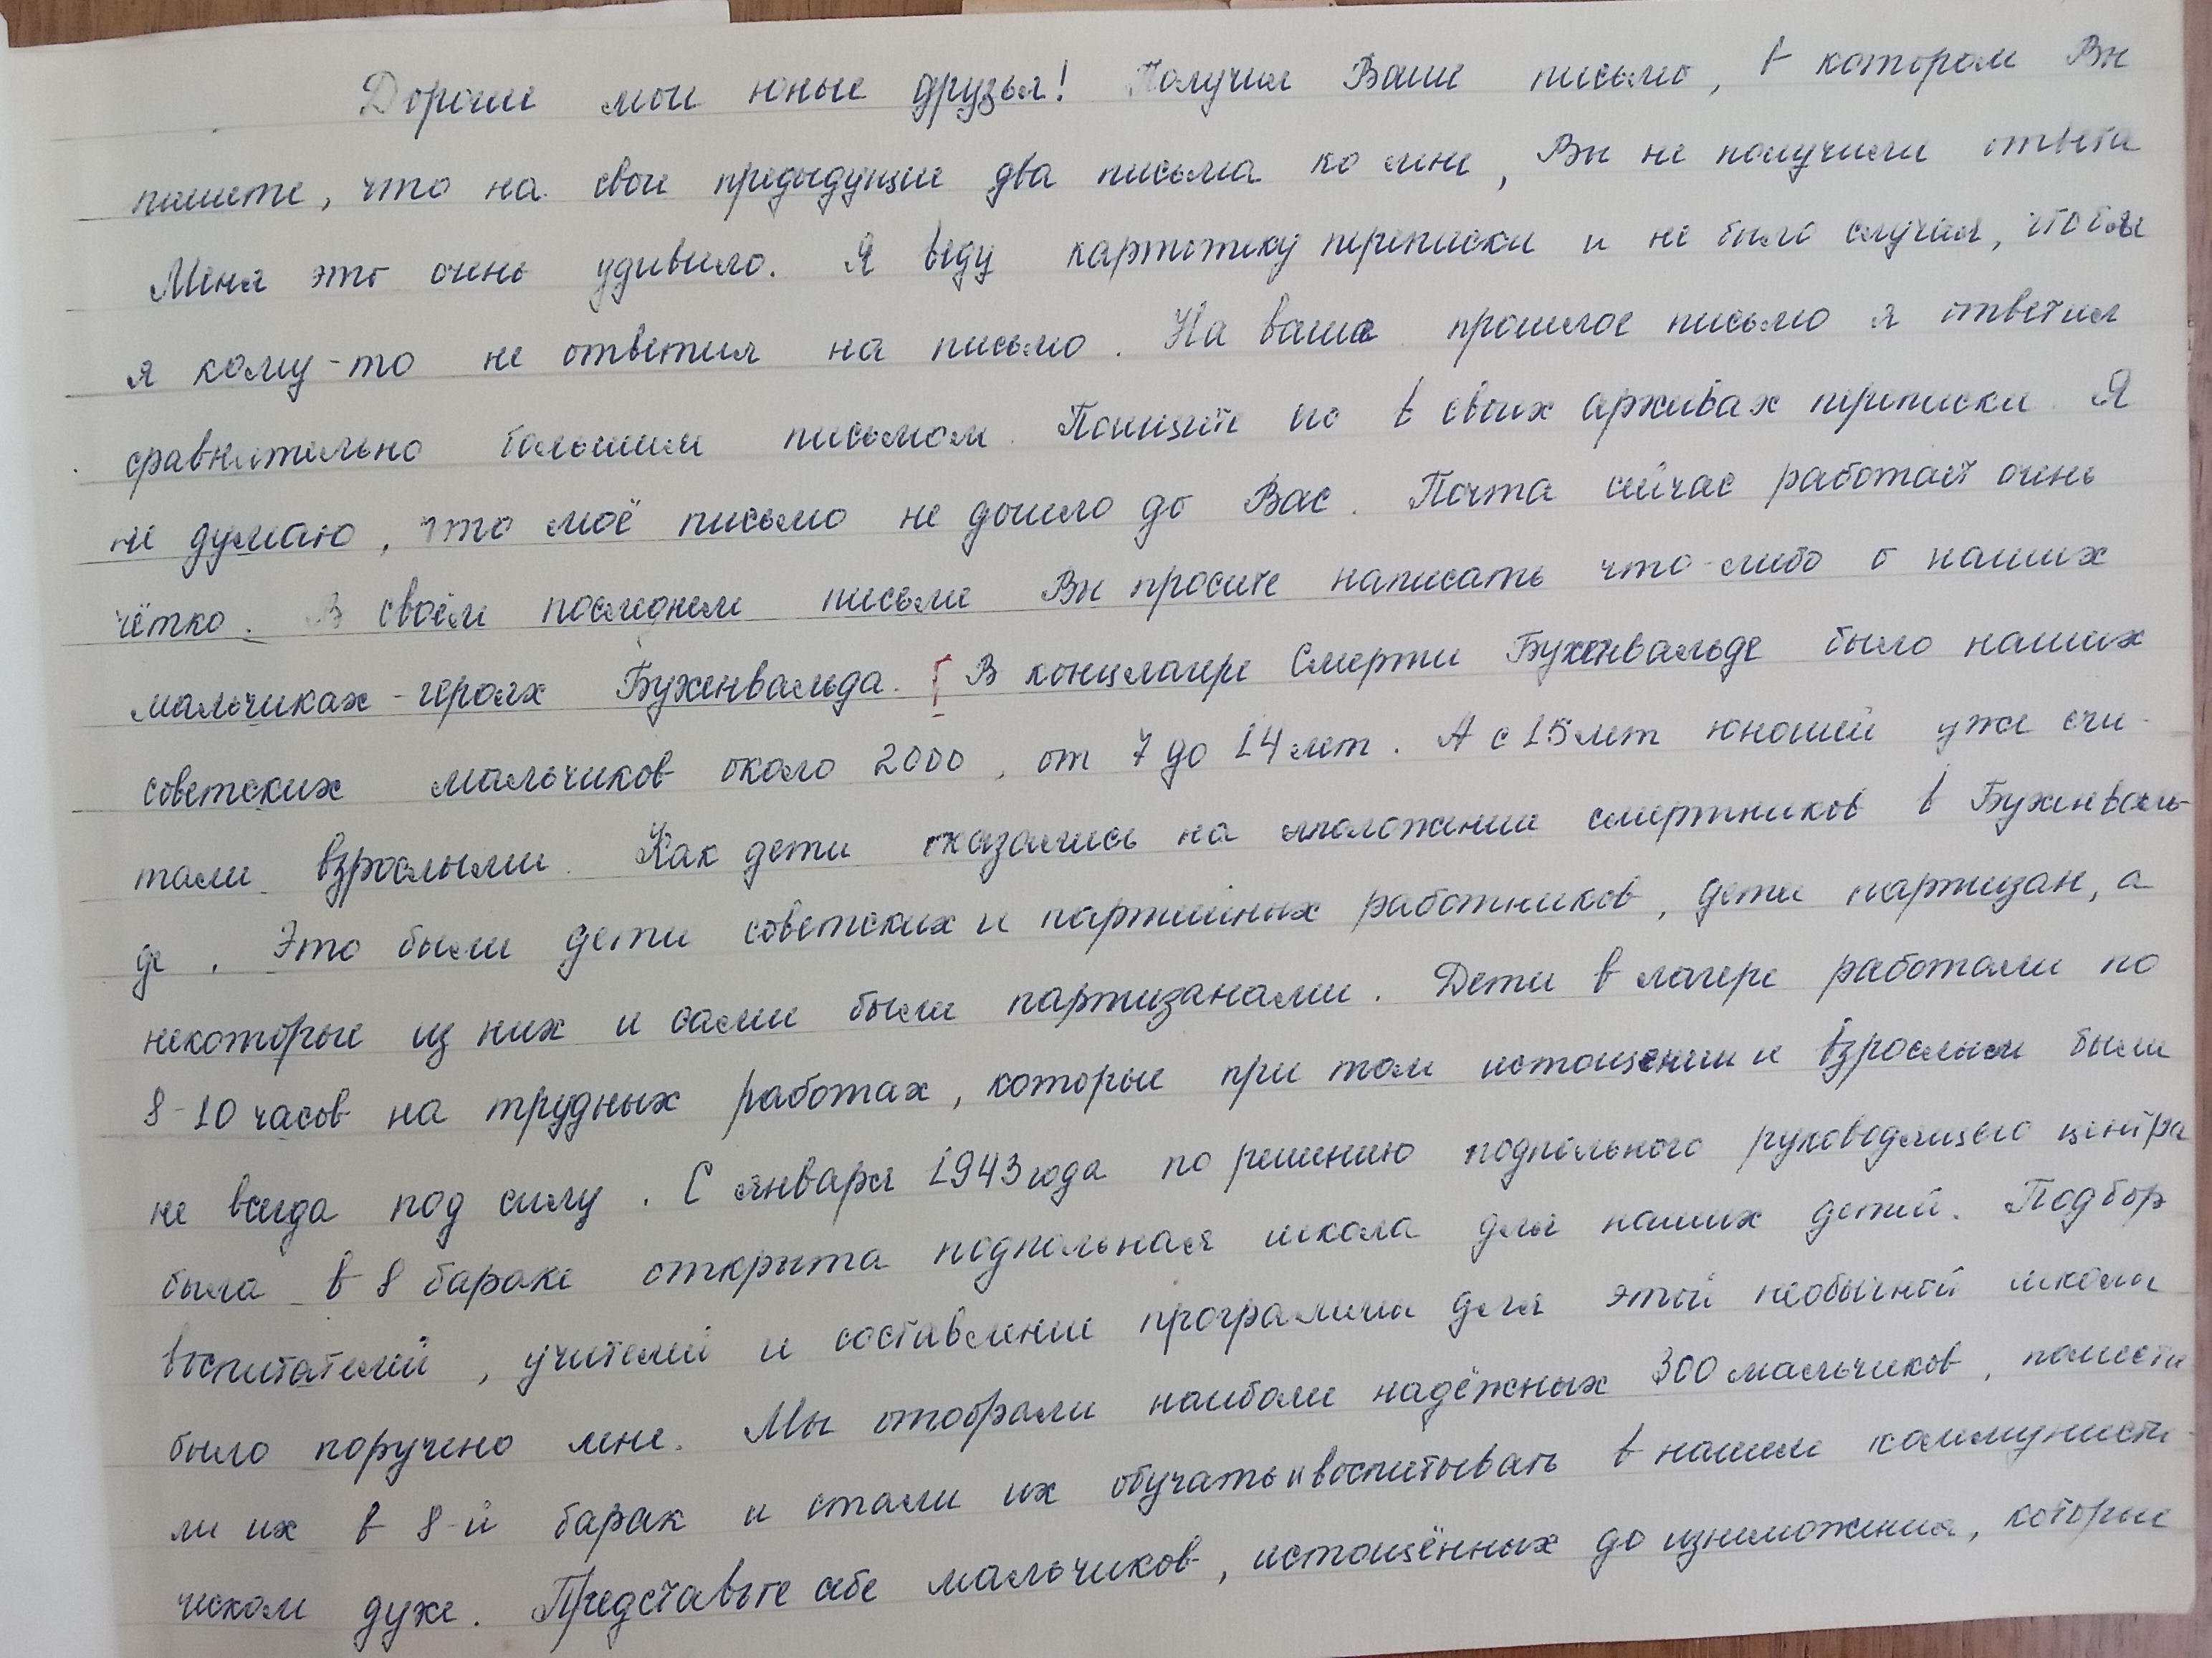 Дорогие мои юные друзья! Получил Ваше письмо, в котором Вы
пишете, что на свои предыдущие два письма ко мне, Вы не получили ответа
Меня это очень удивило. Я веду картотеку переписки и не было случая, чтобы
я кому-то не ответил на письмо. На ваше прошлое письмо я ответил
сравнительно большим письмом. Поищите его в своих архивах переписки. Я
не думаю, что моё письмо не дошло до Вас. Почта сейчас работает очень
чётко. В своём последнем письме Вы просите написать что-либо о наших
мальчиках-героях Бухенвальда. В концлагере Смерти Бухенвальде было наших
советских мальчиков около 2000, от 7 до 14 лет. А с 15 лет юношей уже счи-
тали взрослыми. Как дети оказались на положении смертников в Бухенваль-
де. Это были дети советских и партийных работников, дети партизан, а
некоторые из них и сами были партизанами. Дети в лагере работали по
8-10 часов на трудных работах, которые при том истощении и взрослым были
не всегда под силу. С января 1943 года по решению подпольного руководящего центра
была в 8 бараке открыта подпольная школа для наших детей. Подбор
воспитателей, учителей и составление программы для этой необычной школы
было поручено мне. Мы отобрали наиболее надёжных 300 мальчиков, помести
ли их в 8-й барак и стали их обучать и воспитывать в нашем коммунисти-
ческом духе. Представьте себе мальчиков, истощённых до изнеможения, которые